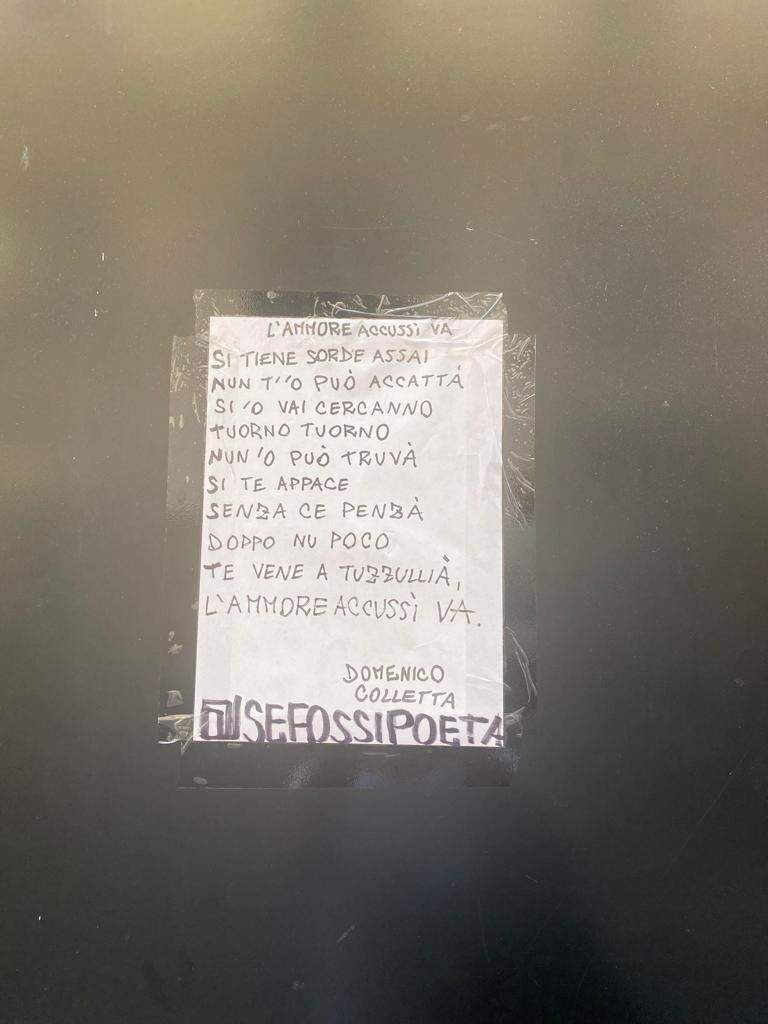 L'AMMORE ACCUSSÌ VA
SI TIENE SORDE ASSAI
NUN T''O PUÒ ACCATTÁ
SI 'O VAI CERCANNO
TUORNO TUORNO
NUN 'O PUÒ TRUVÀ
SI TE APPACE
SENZA CE PENZÀ
DOPPO NU POCO
TE VENE A TUZZULLIÀ,
L'AMMORE ACCUSSÌ VA.
DOMENICO
COLLETTA
@SEFOSSIPOETA